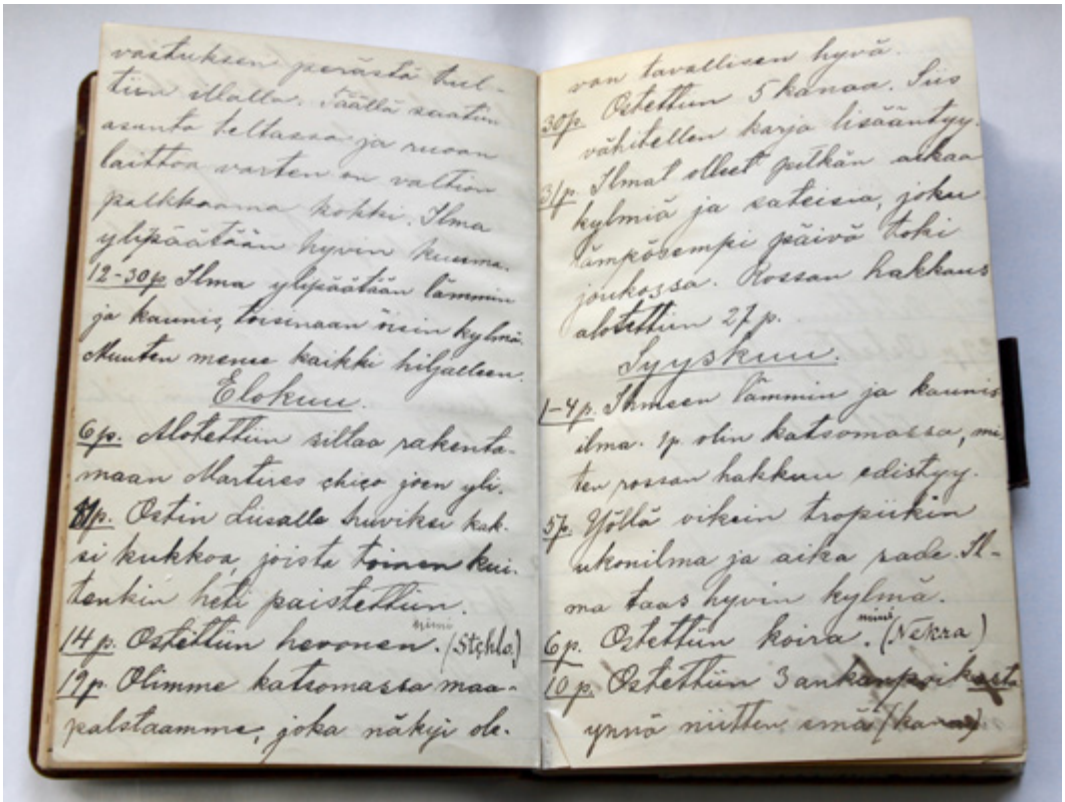 vastuksen perästä tul-
tiin Malla. Täällä saatiin
asunto teltassa ja ruoan
laittoa varten on valtion
palkkaama kokki. Ilma
ylipäätään hyvin kuuma.
12-30p. Ilma ylipäätään lämmin
ja kaunis, toisinaan öisin kylmä.
Muuten menee kaikki hiljalleen.
Elokuu.
6p. Alotettiin siltaa rakenta-
maan Martires chico joen yli.
11p. Ostin Liisalle huviksi kak-
si kukkoa, joista toinen kui-
tenkin heti paistettiin.
14 p. Ostettiin hevonen. nimi (Stehlo.)
19p. Olimme katsomassa maa-
palstaamme, joka näkyi ole-
van tavallisen hyvä.
30p. Ostettiin 5 kanaa. Siis
vähitellen karja lisääntyy.
31p. Ilmat olleet pitkän aikaa
kylmiä ja sateisia, joku
lämpösempi päivä toki
joukossa. Rossan hakkaus
alotettiin 27 p.
Syyskuu.
1-4p. Ihmeen lämmin ja kaunis
ilma. 1p. olin katsomassa, mi-
ten rossan hakkuu edistyy.
5p. Yöllä oikein tropiikin
ukonilma ja aika sade. Il-
ma taas hyvin kylmä.
6p. Ostettiin koira. nimi (Nekra)
10p. Ostettiin 3 ankanpoikasta
ynnä niitten emä (kana).